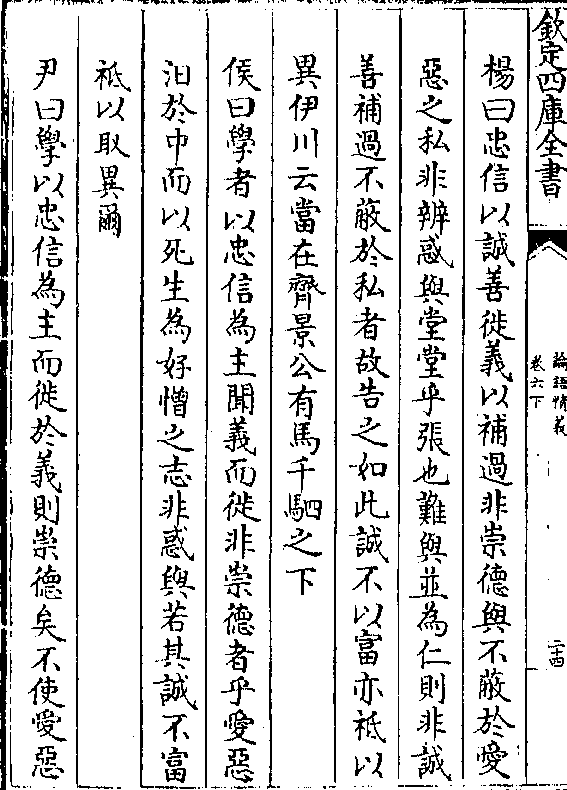 欽定四庫全書
論語精義
卷六下
二十四
楊曰忠信以誠善徙義以補過非崇德與不蔽於愛
惡之私非辨惑與堂堂乎張也難與並為仁則非誠
善補過不蔽於私者故告之如此誠不以富亦祗以
異伊川云當在齊景公有馬千駟之下
侯曰學者以忠信為主聞義而徙非崇德者乎愛惡
汩於中而以死生為好憎之志非惑與若其誠不富
祗以取異爾
尹曰學以忠信為主而徙於義則崇德矣不使愛惡